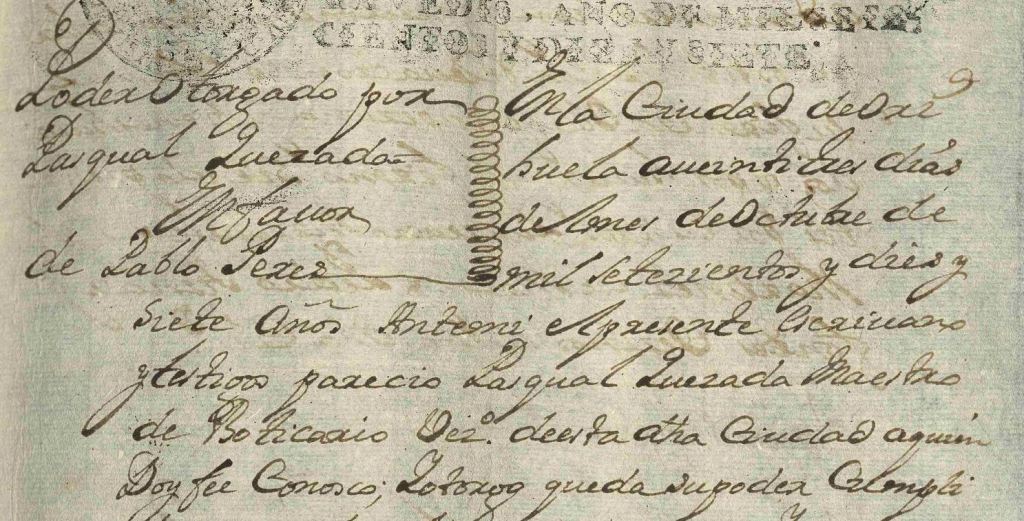 RAVEDIS, AÑO DE MIL SETE
CIENTOS Y DIEZ Y SIETE.
Poder Otorgado por
Pasqual Quezada
En favor
de Pablo Perez
En la Ciudad de Ori
huela a veintitres dias
del mes de Octubre de
mil setezientos y diez y
siete Años Antemi el presente Escrivano
y testigos parecio Pasqual Quezada Maestro
de Boticario Vezº. de esta dha Ciudad a quien
Doy fee Conosco; y otorgo que da su poder Cumpli